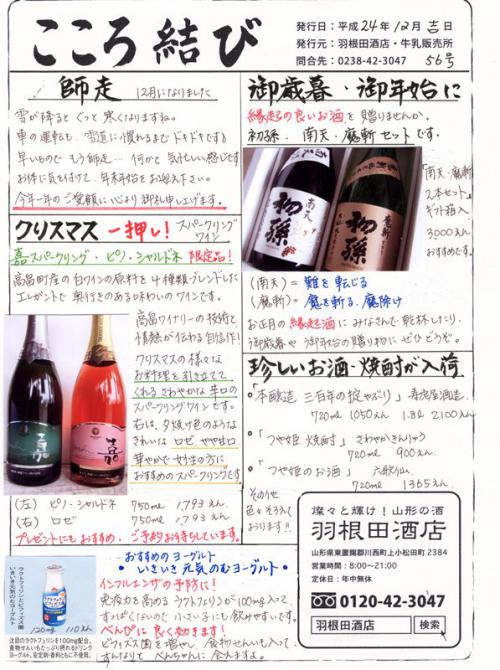 こころ結び
発行日：平成24年12月吉日
発行元：羽根田酒店・牛乳販売所
問合先：0238-42-3047 56号
師走 12月になりました
雪が降るとぐっと寒くなりますね。
車の運転も、雪道に慣れるまでドキドキです
早いものでもう師走…何かと気忙しい感じです
お体に気を付けて、年末年始をお迎え下さい。
今年一年のご愛顧に心より御礼申し上げます。
クリスマス 一押し！ スパークリングワイン
嘉スパークリング・ピノ・シャルドネ 限定品！
高畠町産の白ワインの原料を4種類ブレンドした
エレガントで奥行きのある味わいのワインです。
高畠ワイナリーの技術と
情熱が伝わる自信作！
クリスマスの様々な
お料理を引き立てて
くれるさわやかな辛口の
スパークリングワインです。
右は、夕焼け色のような
きれいなロゼ やや甘口
華やかで女子の方に
おすすめのスパークリングです
（左）ピノ・シャルドネ 750ml 1,793えん
（右）ロゼ 750ml 1,793えん
プレゼントにもおすすめ、ご予約お待ちしています。
御歳暮・御年始に
縁起の良いお酒を贈りませんか。
初孫、南天・魔斬セットです。
南天
初孫
魔斬
初孫
「南天・魔斬
2本セット」
ギフト箱入
3000えん
おすすめです。
（南天）＝ 難を転じる
（魔斬）＝ 魔を斬る、魔除け
お正月の縁起酒にみなさんで乾杯したり、
御歳暮や御年始の贈り物にぜひどうぞ。
珍しいお酒・焼酎が入荷
・「本醸造 三百年の掟やぶり」寿虎屋酒造
720ml 1050えん 1.8l 2100えん
・「つや姫 焼酎」さわやかきんりゅう
720ml 900えん
・「つや姫のお酒」六歌仙
720ml 1365えん
その他
色々そろえて
おります!!
燦々と輝け！山形の酒
羽根田酒店
山形県東置賜郡川西町上小松田町2384
営業時間：8:00〜21:00
定休日：年中無休
0120-42-3047
羽根田酒店 検索
おすすめのヨーグルト
・いきいき元気のむヨーグルト・
インフルエンザの予防に！
免疫力を高めるラクトフェリンが100mg入って
すっぱくないので小さい子にも飲みやすいです。
べんぴに良く効きます！
ビフィズス菌を増やし、食物せんいも入って
すんなりとべんちゃんに会えますよ。
ラクトフェリンとビフィズス菌
いきいき元気のむヨーグルト
120ml 110えん
注目のラクトフェリンを100mg配合。
食物せんいもたっぷり摂れるドリンク
ヨーグルト。安定剤・香料ともに不使用。